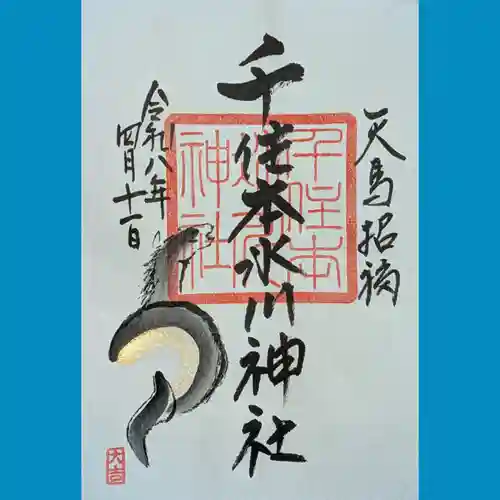 天馬招福
千住本氷川神社
令和八年
四月十一日
千住本
神社
大吉